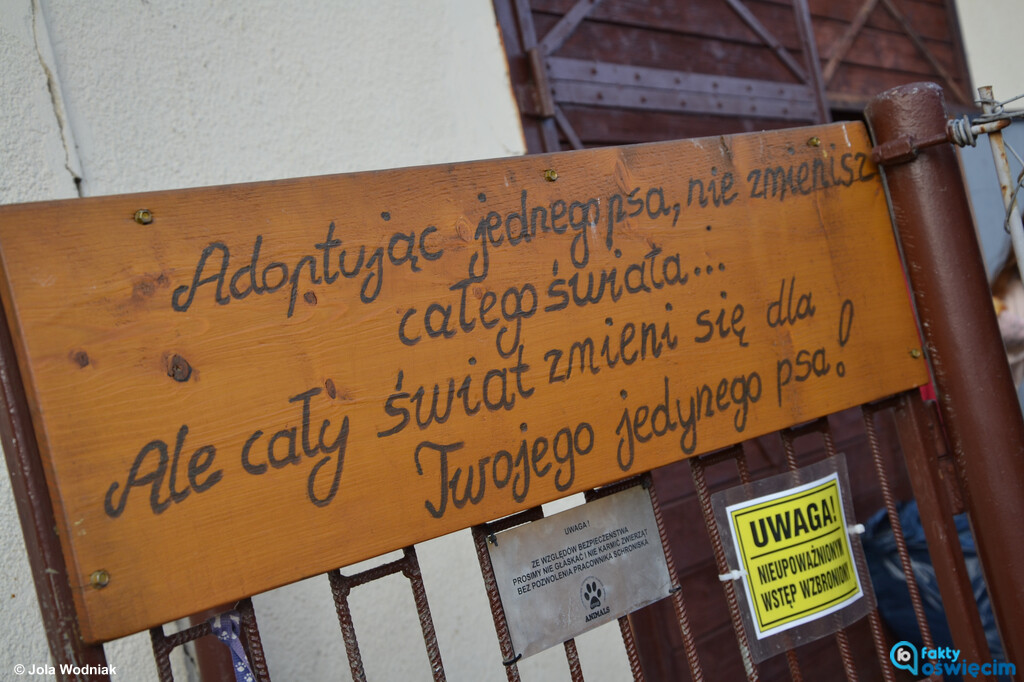 Adoptując jednego psa, nie zmienisz
całego świata...
Ale cały świat zmieni się dla
Twojego jedynego psa!
UWAGA!
ZE WZGLĘDÓW BEZPIECZEŃSTWA
PROSIMY NIE GŁASKAĆ I NIE KARMIĆ ZWIERZĄT
BEZ POZWOLENIA PRACOWNIKA SCHRONISKA
ANIMALS
UWAGA!
NIEUPOWAŻNIONYM
WSTĘP WZBRONIONY
© Jola Wodniak
fo fakty
oświęcim